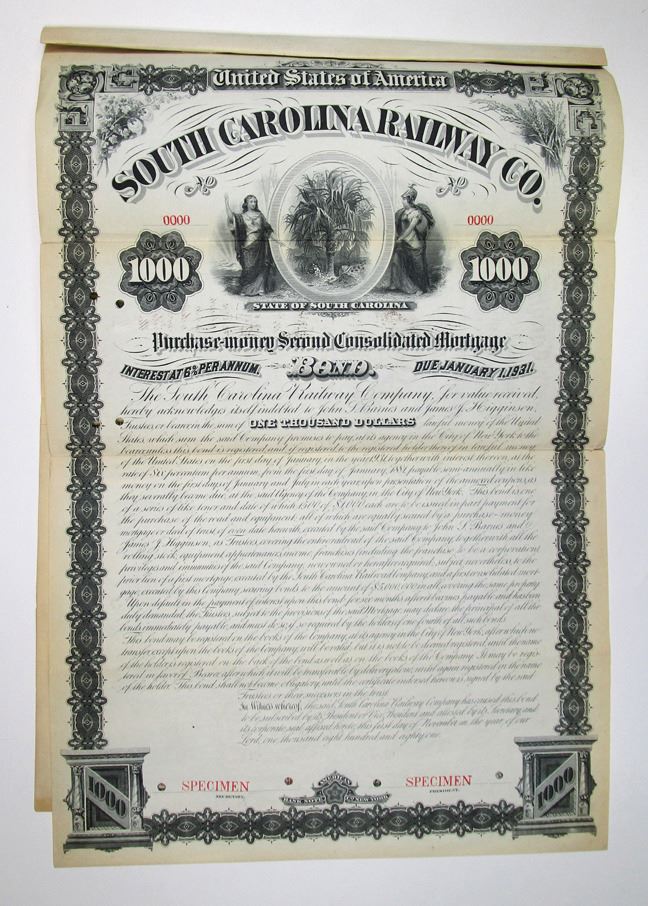 United States of America
SOUTH CAROLINA RAILWAY CO.
No No
0000 0000
1000 1000
STATE OF SOUTH CAROLINA
Purchase-money Second Consolidated Mortgage
INTEREST AT 6% PER ANNUM. BOND. DUE JANUARY 1, 1931.
The South Carolina Railway Company, for value received,
hereby acknowledges itself indebted to John S. Barnes and James J. Higginson,
Trustees, or bearer, in the sum of ONE THOUSAND DOLLARS lawful money of the United
States, which sum the said Company promises to pay, at its agency in the City of New York, to the
bearer unless this bond is registered, and if registered to the registered holder hereof, in lawful money
of the United States on the first day of January in the year 1931, with interest thereon, at the
rate of six per centum per annum, from the first day of January, 1881, payable semi-annually in like
money on the first days of January and July in each year upon presentation of the annexed coupons, as
they severally become due, at the said Agency of the Company, in the City of New York. This bond is one
of a series of like tenor and date of which 1500 of $1000 each are to be issued in part payment for
the purchase of the road and equipment, all of which are equally secured by a purchase-money
mortgage or deed of trust of even date herewith, executed by the said Company to John S. Barnes and
James J. Higginson, as Trustees, covering the entire railroad of the said Company, together with all the
rolling stock, equipment, appurtenances, income, franchises (including the franchise to be a corporation)
privileges and immunities of the said Company, now owned or hereafter acquired, subject, nevertheless, to the
prior lien of a first mortgage, executed by the South Carolina Railroad Company, and a first consolidated mort-
gage, executed by this Company, securing bonds to the amount of $5,000,000 in all, covering the same property.
Upon default in the payment of interest upon this bond, for six months after it becomes payable and has been
duly demanded, the Trustees, subject to the provisions of the said Mortgage, may declare the principal of all the
bonds immediately payable, and must do so, if so required by the holders of one fourth of all such bonds.
This bond may be registered in the books of the Company, at its agency in the City of New York, after which no
transfer except upon the books of the Company, will be valid, but it is not to be deemed registered, until the name
of the holder is registered on the back of the bond as well as on the books of the Company. It may be regis-
tered in favor of Bearer after which it will be transferable by delivery as before, until again registered in the name
of the holder. This bond shall not become obligatory, until the certificate endorsed hereon is signed by the said
Trustees or their successors in the trust.
In Witness whereof, the said South Carolina Railway Company has caused this bond
to be subscribed by its President or Vice President and attested by its Secretary, and
its corporate seal affixed hereto, this first day of November in the year of our
Lord, one thousand eight hundred and eighty one.
SPECIMEN SPECIMEN
SECRETARY. PRESIDENT.
AMERICAN
BANK NOTE CO. NEW YORK
1000 1000